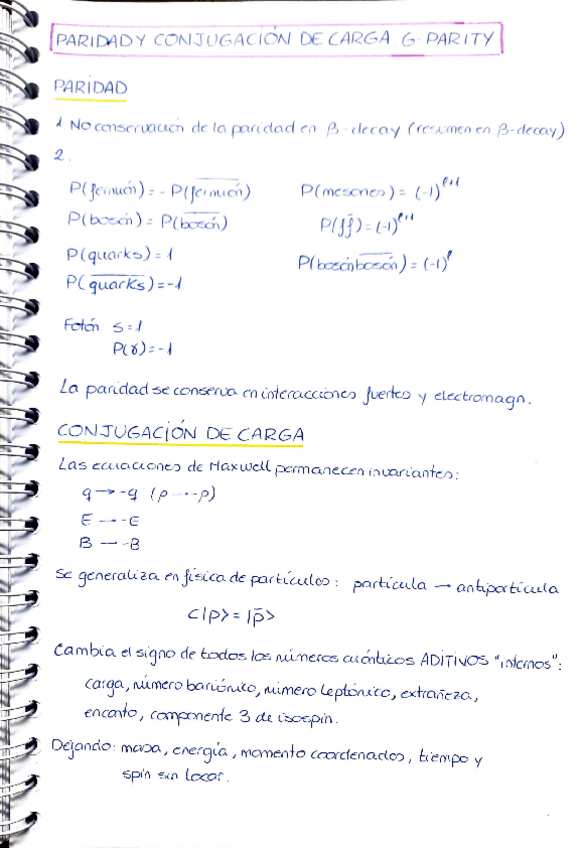 PARIDAD Y CONJUGACIÓN DE CARGA G-PARITY
PARIDAD
1 No conservación de la paridad en β-decay (resumen en β-decay)
2.
P(fermión) = - P(\overline{fermión})    P(mesones) = (-1)^{l+1}
P(bosón) = P(\overline{bosón})    P(f\bar{f}) = (-1)^{l+1}
P(quarks) = 1    P(bosón\overline{bosón}) = (-1)^l
P(\overline{quarks}) = -1
Fotón s=1
P(γ) = -1
La paridad se conserva en interacciones fuertes y electromagn.
CONJUGACIÓN DE CARGA
Las ecuaciones de Maxwell permanecen invariantes:
q → -q (ρ → -ρ)
E → -E
B → -B
Se generaliza en física de partículas: partícula → antipartícula
C|p> = |\bar{p}>
Cambia el signo de todos los números cuánticos ADITIVOS "internos":
carga, número bariónico, número leptónico, extrañeza,
encanto, componente 3 de isospin.
Dejando: masa, energía, momento coordenados, tiempo y
spin sin tocar.